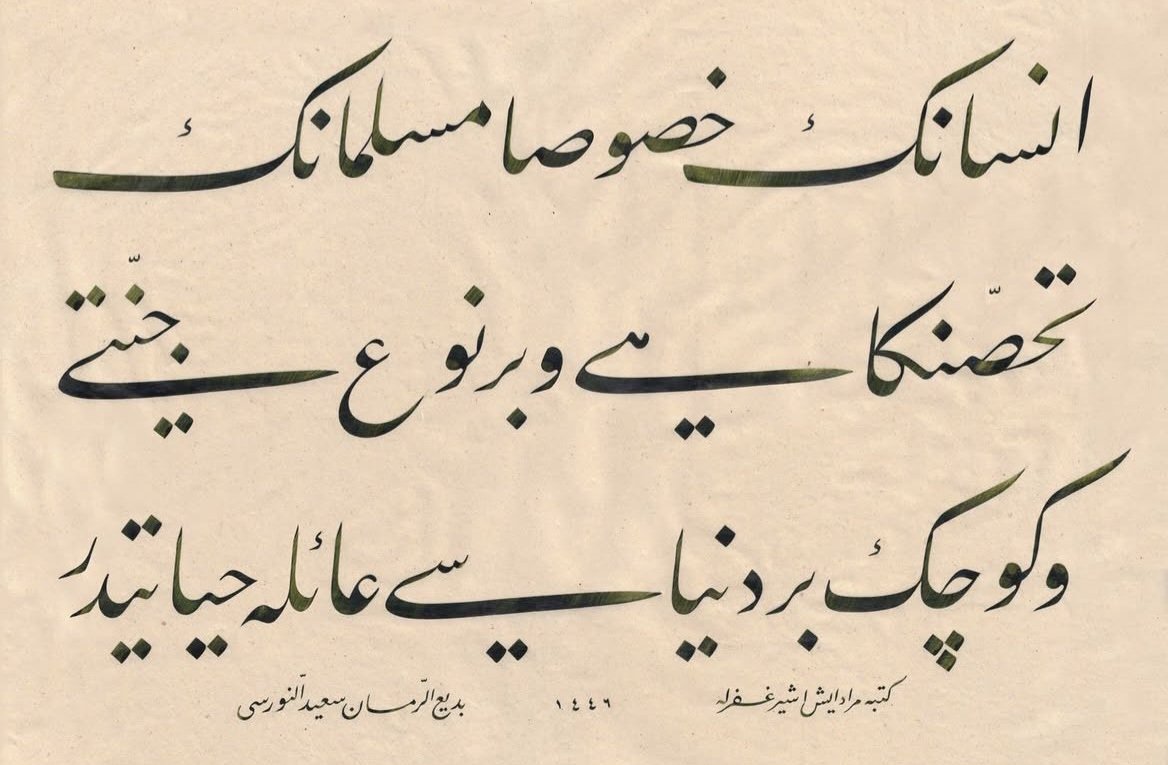 انسانك خصوصا مسلمانك
تحصّنكاهی و بر نوع جنّتی
و كوچك بر دنیاسی عائله حیاتیدر
كتبه مراد ایش اشیر غفرله
١٤٤٦
بدیع الزّمان سعید النّورسی